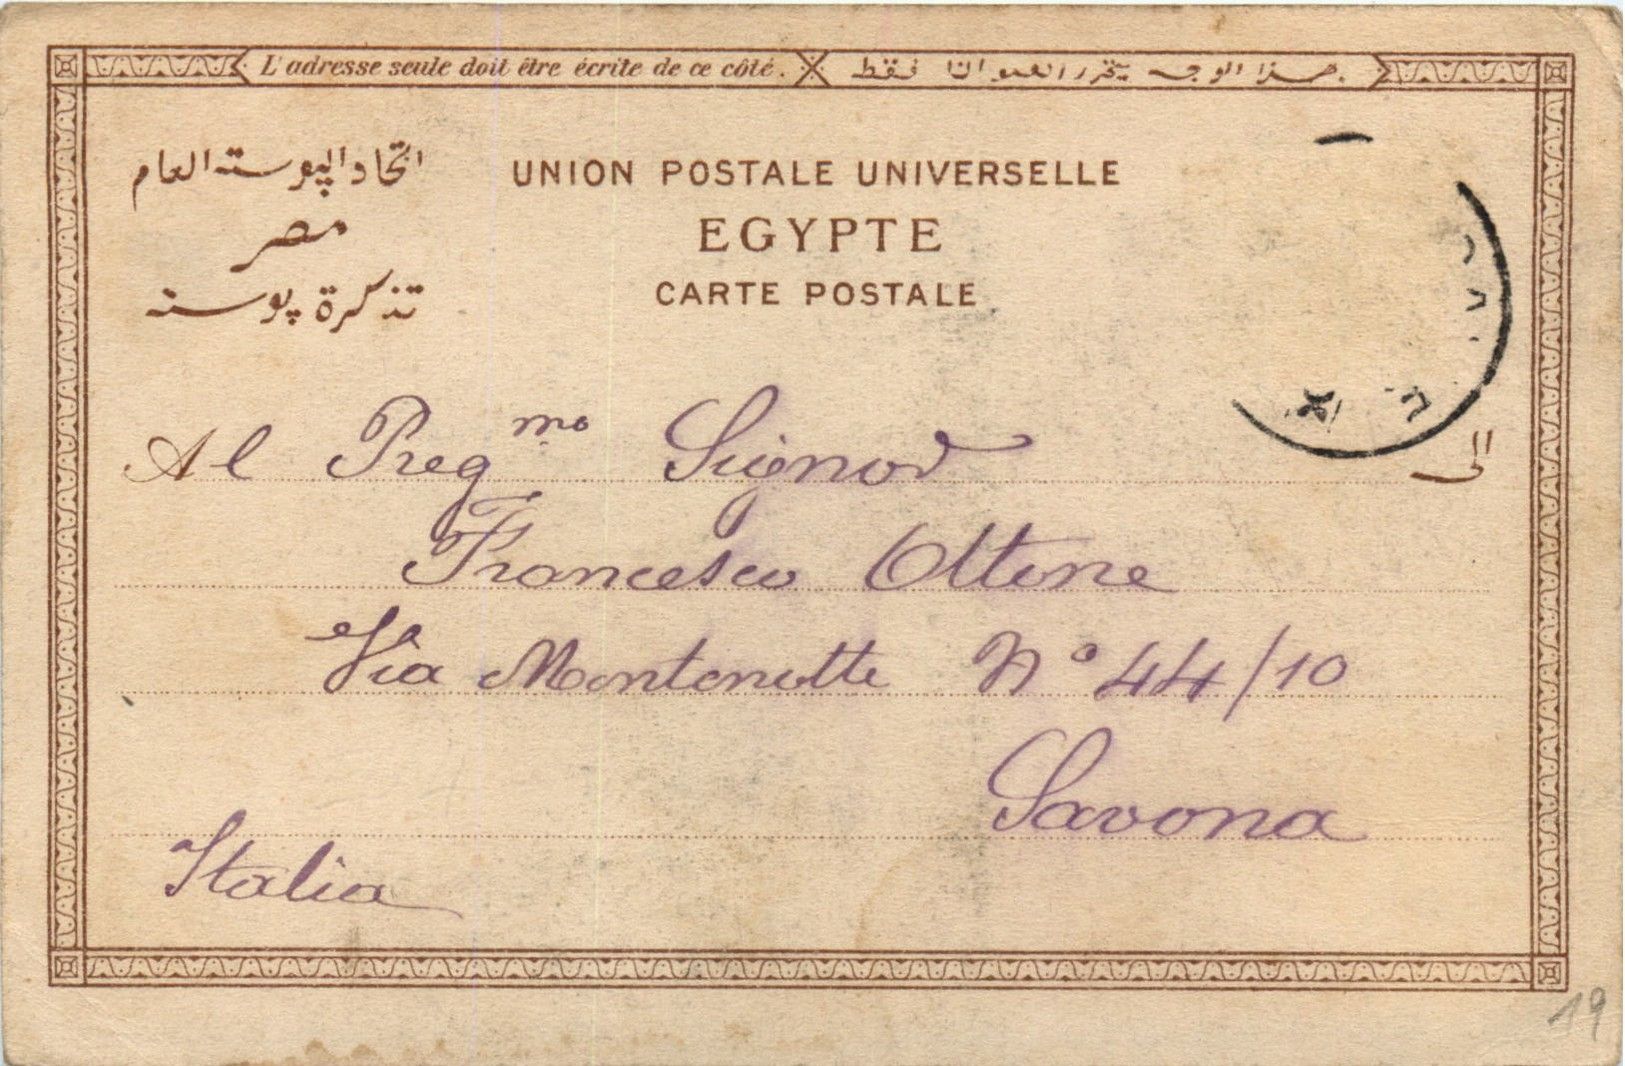 L'adresse seule doit être écrite de ce côté.
هذا الوجه يحرر العنوانا فقط
اتحاد الپوسته العام
مصر
تذكرة پوسته
UNION POSTALE UNIVERSELLE
EGYPTE
CARTE POSTALE
الى
Al Preg.mo Signor
Francesco Ottone
Via Montenotte No 44/10
Savona
Italia
19